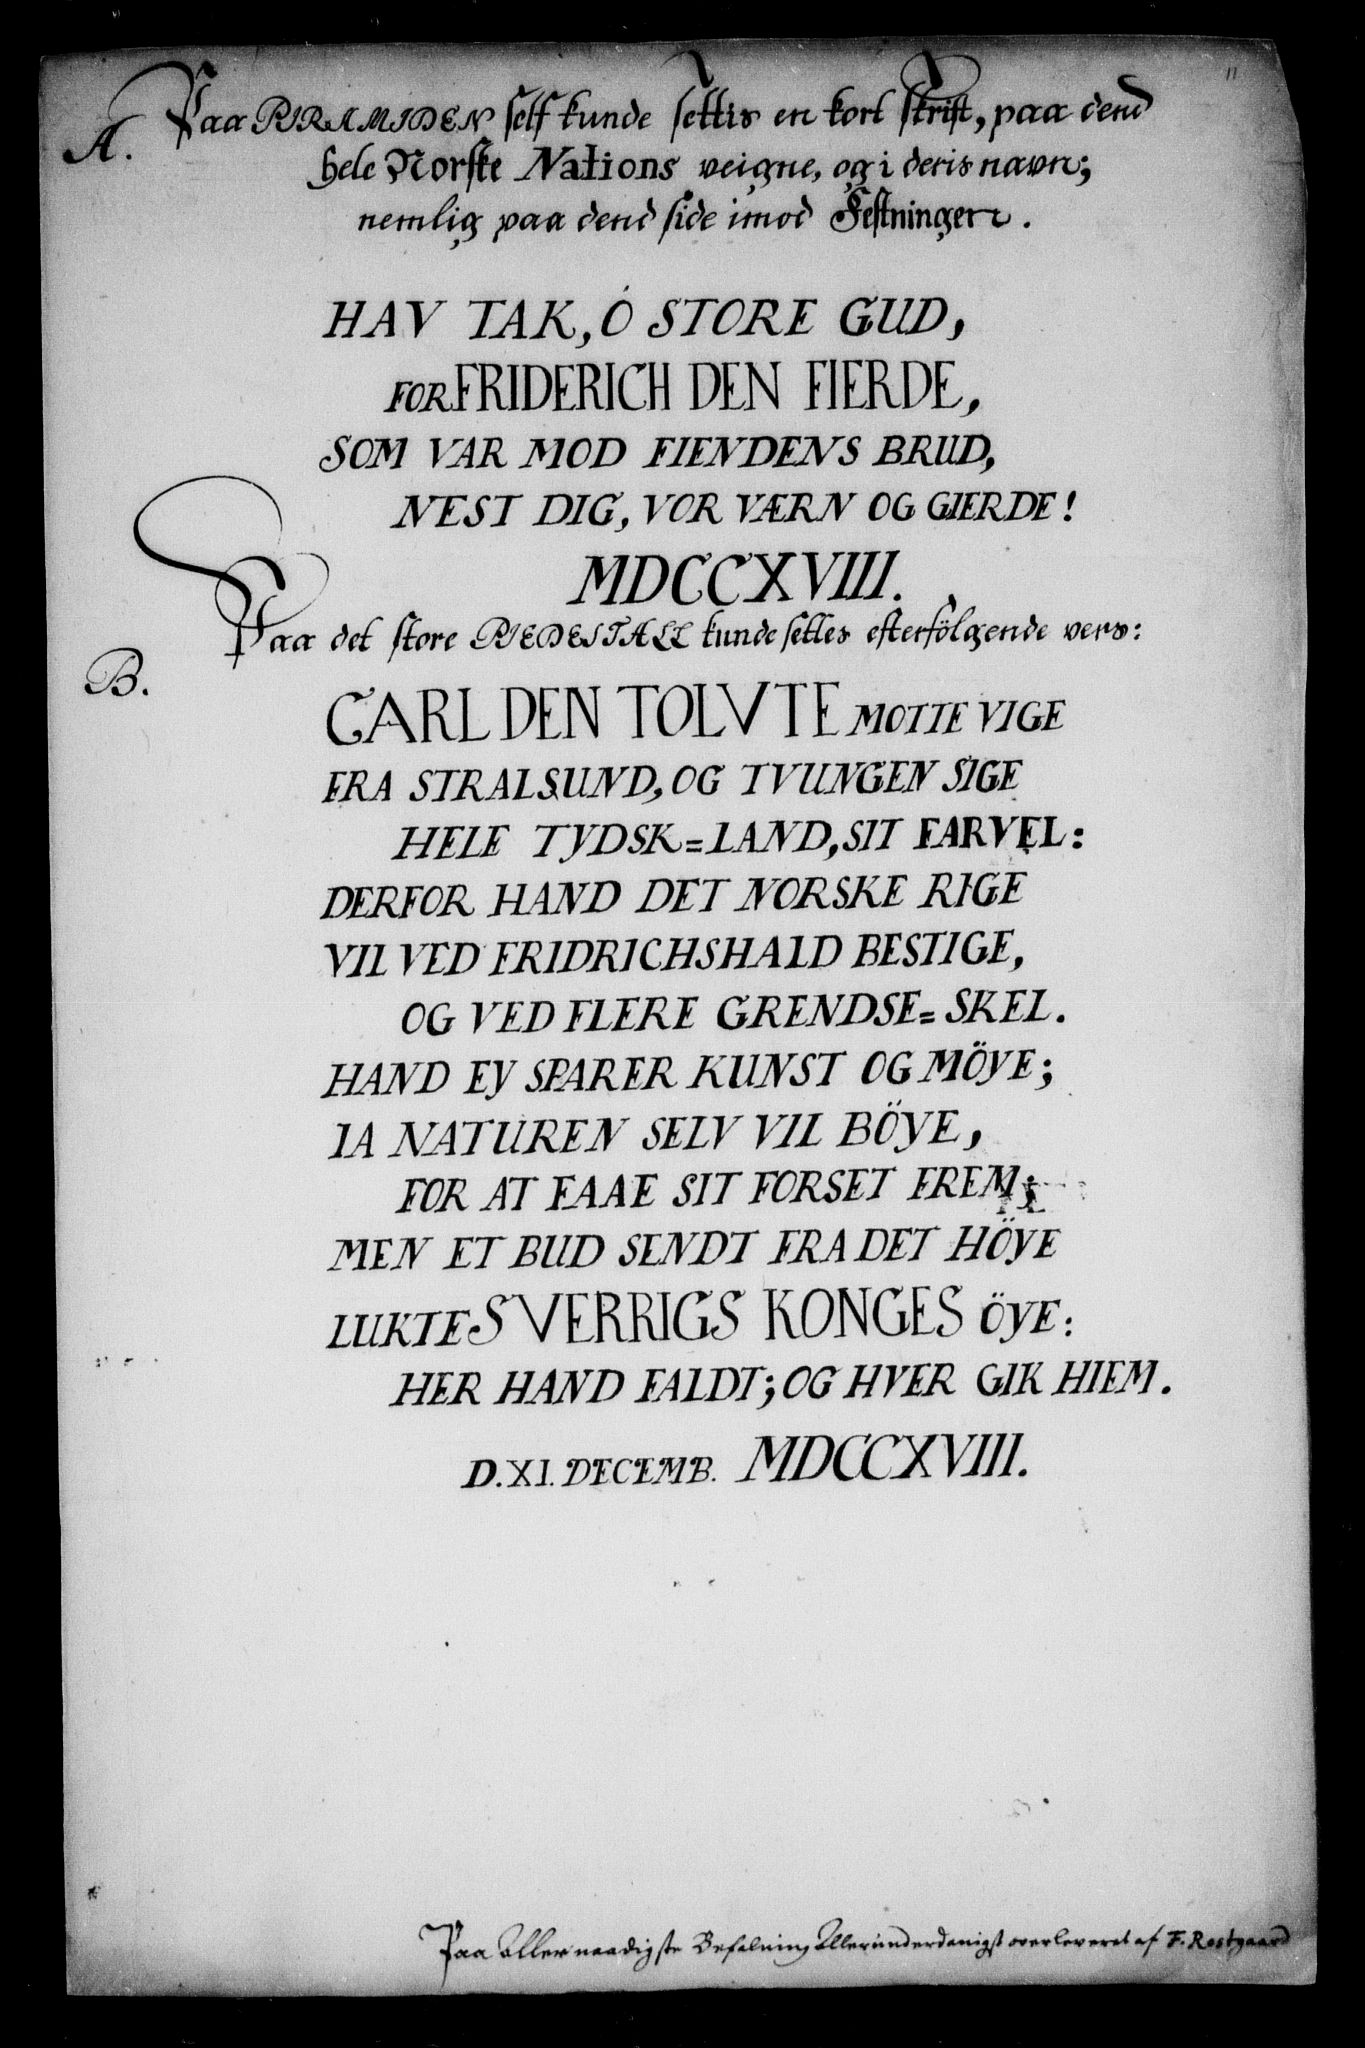 11
A. Paa PIRAMIDEN self kunde settis en kort skrift, paa dend
hele Norske Nations veigne, og i deris navn;
nemlig paa dend side imod Festningen.
HAV TAK, O STORE GUD,
FOR FRIDERICH DEN FIERDE,
SOM VAR MOD FIENDENS BRUD,
NEST DIG, VOR VÆRN OG GIERDE!
MDCCXVIII.
Paa det store PIEDESTALL kunde settes efterfölgende vers:
B.
CARL DEN TOLVTE MOTTE VIGE
FRA STRALSUND, OG TVUNGEN SIGE
HELE TYDSK=LAND, SIT FARVEL:
DERFOR HAND DET NORSKE RIGE
VIL VED FRIDRICHSHALD BESTIGE,
OG VED FLERE GRENDSE=SKEL.
HAND EY SPARER KUNST OG MÖYE;
IA NATUREN SELV VIL BÖYE,
FOR AT FAAE SIT FORSET FREM;
MEN ET BUD SENDT FRA DET HÖYE
LUKTE SVERRIGS KONGES ÖYE:
HER HAND FALDT; OG HVER GIK HIEM.
D. XI. DECEMB. MDCCXVIII.
Paa Allernaadigste Befalning Allerunderdanigst overleveret af F. Rostgaard